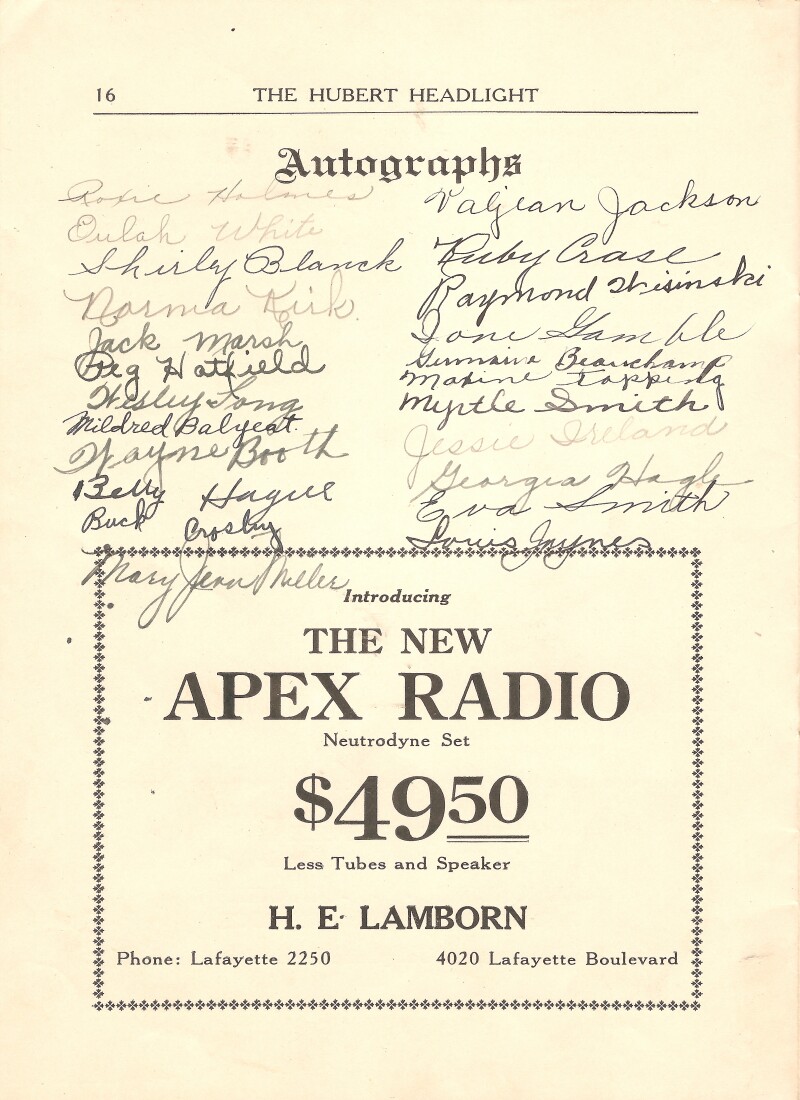 16 THE HUBERT HEADLIGHT
Autographs
Roxie Holmes
Eulah White
Shirley Blanck
Norma Kirk
Jack Marsh
Peg Hatfield
Wesley Long
Mildred Balyeat.
Wayne Booth
Betty Hague
Buck Crosby
Mary Jean Miller
Valjean Jackson
Ruby Crase
Raymond Wisinski
Ione Gamble
Germaine Beauchamp
Maxine Topping
Myrtle Smith
Jessie Ireland
Georgia Hagle
Eva Smith
Louis Jaynes
Introducing
THE NEW
APEX RADIO
Neutrodyne Set
$49 50
Less Tubes and Speaker
H. E. LAMBORN
Phone: Lafayette 2250 4020 Lafayette Boulevard